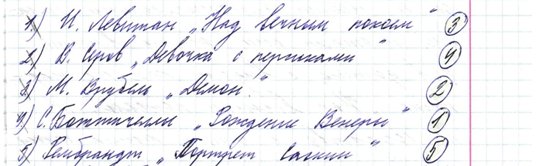 1.) И. Левитан „Над вечным покоем" 3
2.) В. Серов „Девочка с персиками" 4
3.) М. Врубель „Демон" 2
4) С. Боттичелли „Рождение Венеры" 1
5) Рембрандт „Портрет Саскии" 5